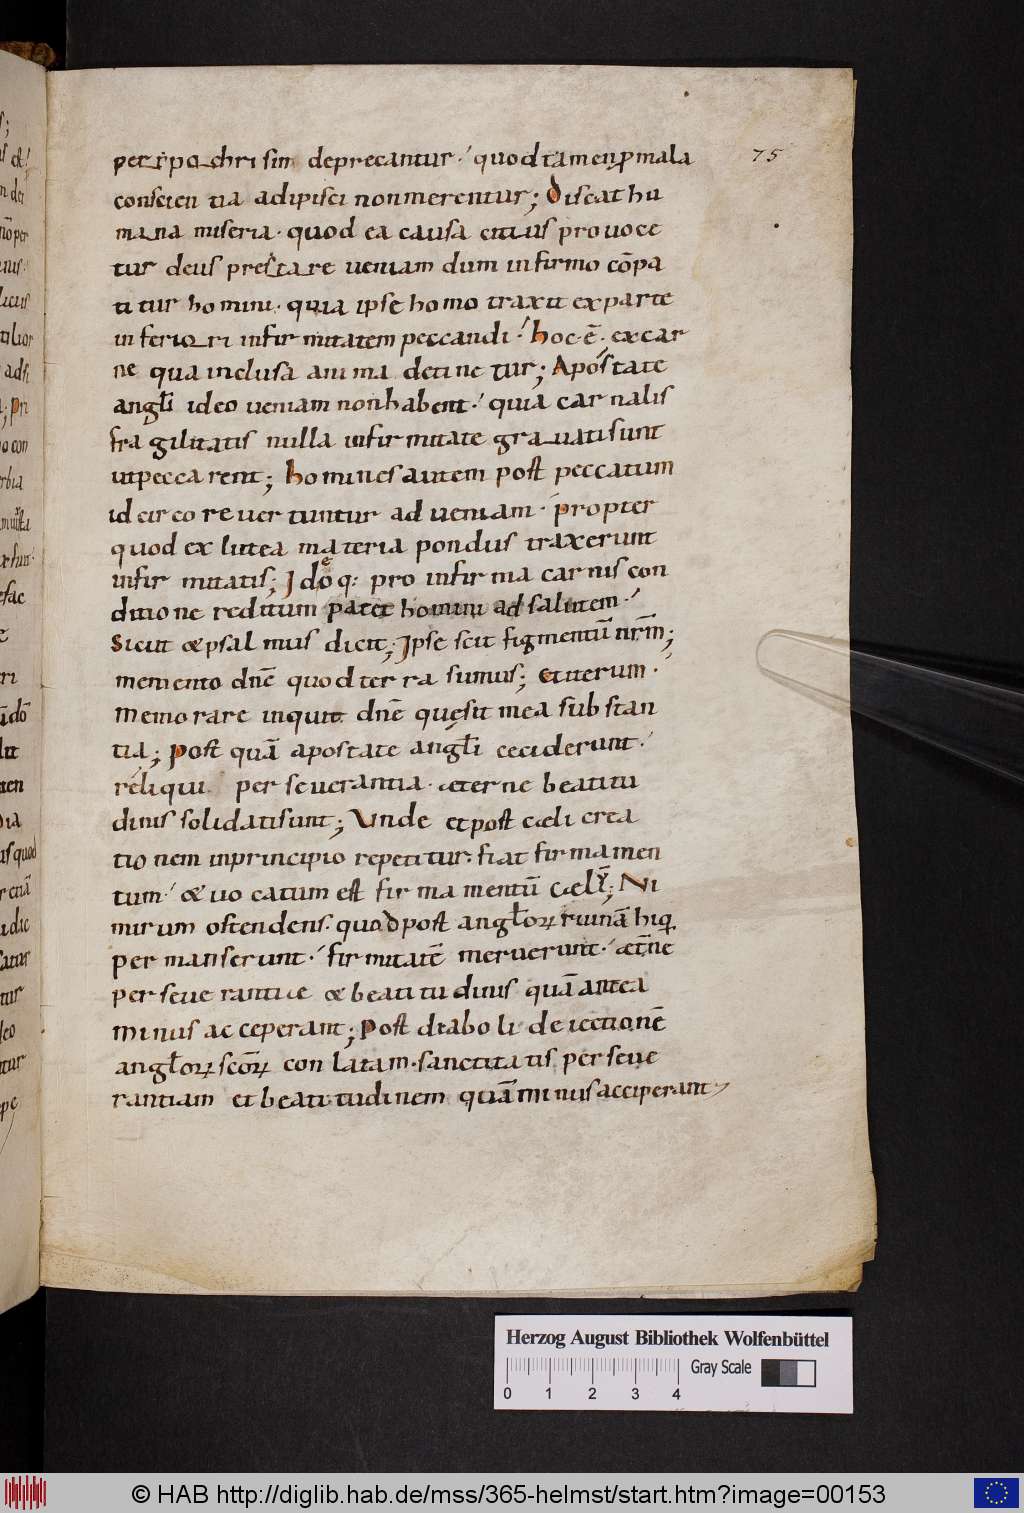 per ypochrisim deprecantur · quod tamen ꝓ mala
75
conscientia adipisci non merentur; Discat hu
mana miseria · quod ea causa citius provoce
tur deus prestare veniam dum infirmo cōpa
titur homini · quia ipse homo traxit ex parte
inferiori infirmitatem peccandi · hoc · ē · ex car
ne qua inclusa anima detinetur; Apostate
angl̄i ideo veniam non habent · quia carnalis
fragilitatis nulla infirmitate gravati sunt
ut peccarent; homines autem post peccatum
idcirco revertuntur ad veniam · propter
quod ex lutea materia pondus traxerunt
infirmitatis; Idēoq: pro infirma carnis con
ditione reditum patet homini ad salutem ·
Sicut & psalmus dicit; Ipse scit figmentū nr̄m;
memento dn̄e quod terra sumus; et iterum ·
Memorare inquit dn̄e quęsit mea substan
tia; Post quā apostate angl̄i ceciderunt ·
reliqui perseverantia · ęterne beatitu
dinis solidati sunt; Unde et post cęli crea
tionem in principio repetitur: fiat firmamen
tum · & vocatum est firmamentū cęlū; Ni
mirum ostendens · quod post angl̄oꝝ ruinā hi q
permanserunt · firmitatē meruerunt · ęt̄ne
perseverantię & beatitudinis quā antea
minus acceperant; Post diaboli deiectionē
angl̄oꝝ sc̄oꝝ conlatam · sanctitatis perseve
rantiam et beatitudinem quā minus acciperant
Herzog August Bibliothek Wolfenbüttel
0 1 2 3 4
Gray Scale
© HAB http://diglib.hab.de/mss/365-helmst/start.htm?image=00153